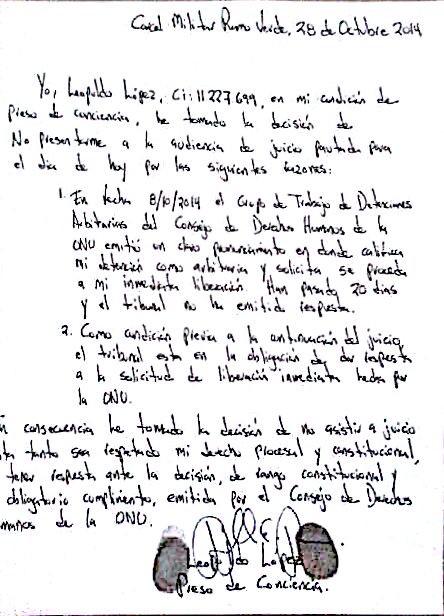 Carcel Militar Ramo Verde, 28 de Octubre 2014
Yo, Leopoldo López, Ci: 11227699, en mi condición de
preso de conciencia, he tomado la decisión de
No presentarme a la audiencia de juicio pautada para
el dia de hoy por las siguientes razones:
1. En fecha 8/10/2014 el Grupo de Trabajo de Detenciones
Arbitrarias del Consejo de Derechos Humanos de la
ONU emitió un claro pronunciamiento en donde califica
mi detención como arbitraria y solicita se proceda
a mi inmediata liberación. Han pasado 20 dias
y el tribunal no ha emitido respuesta.
2. Como condición previa a la continuación del juicio,
el tribunal esta en la obligación de dar respuesta
a la solicitud de liberación inmediata hecha por
la ONU.
n consecuencia he tomado la decisión de no asistir a juicio
ta tanto sea respetado mi derecho procesal y constitucional,
tener respuesta ante la decisión, de rango constitucional y
obligatorio cumplimiento, emitida por el Consejo de Derechos
manos de la ONU.
Leopoldo López
Preso de Conciencia.